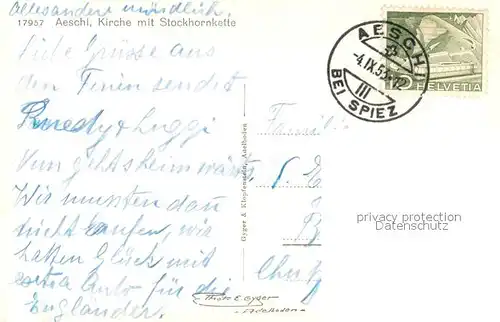 Alles andere mündlich.
17957 Aeschi, Kirche mit Stockhornkette
Liebe Grüsse aus
den Ferien sendet
Ruedy & Luggi
Nun gehts heimwärts.
Wir mussten dan
nicht laufen, wir
hatten Glück mit
extra Auto für die
Engländer.
Gyger & Klopfenstein, Adelboden
AESCHI
-4.IX.53-12
III
BEI SPIEZ
HELVETIA
Familie
privacy protection
Datenschutz
Photo E. Gyger
Adelboden